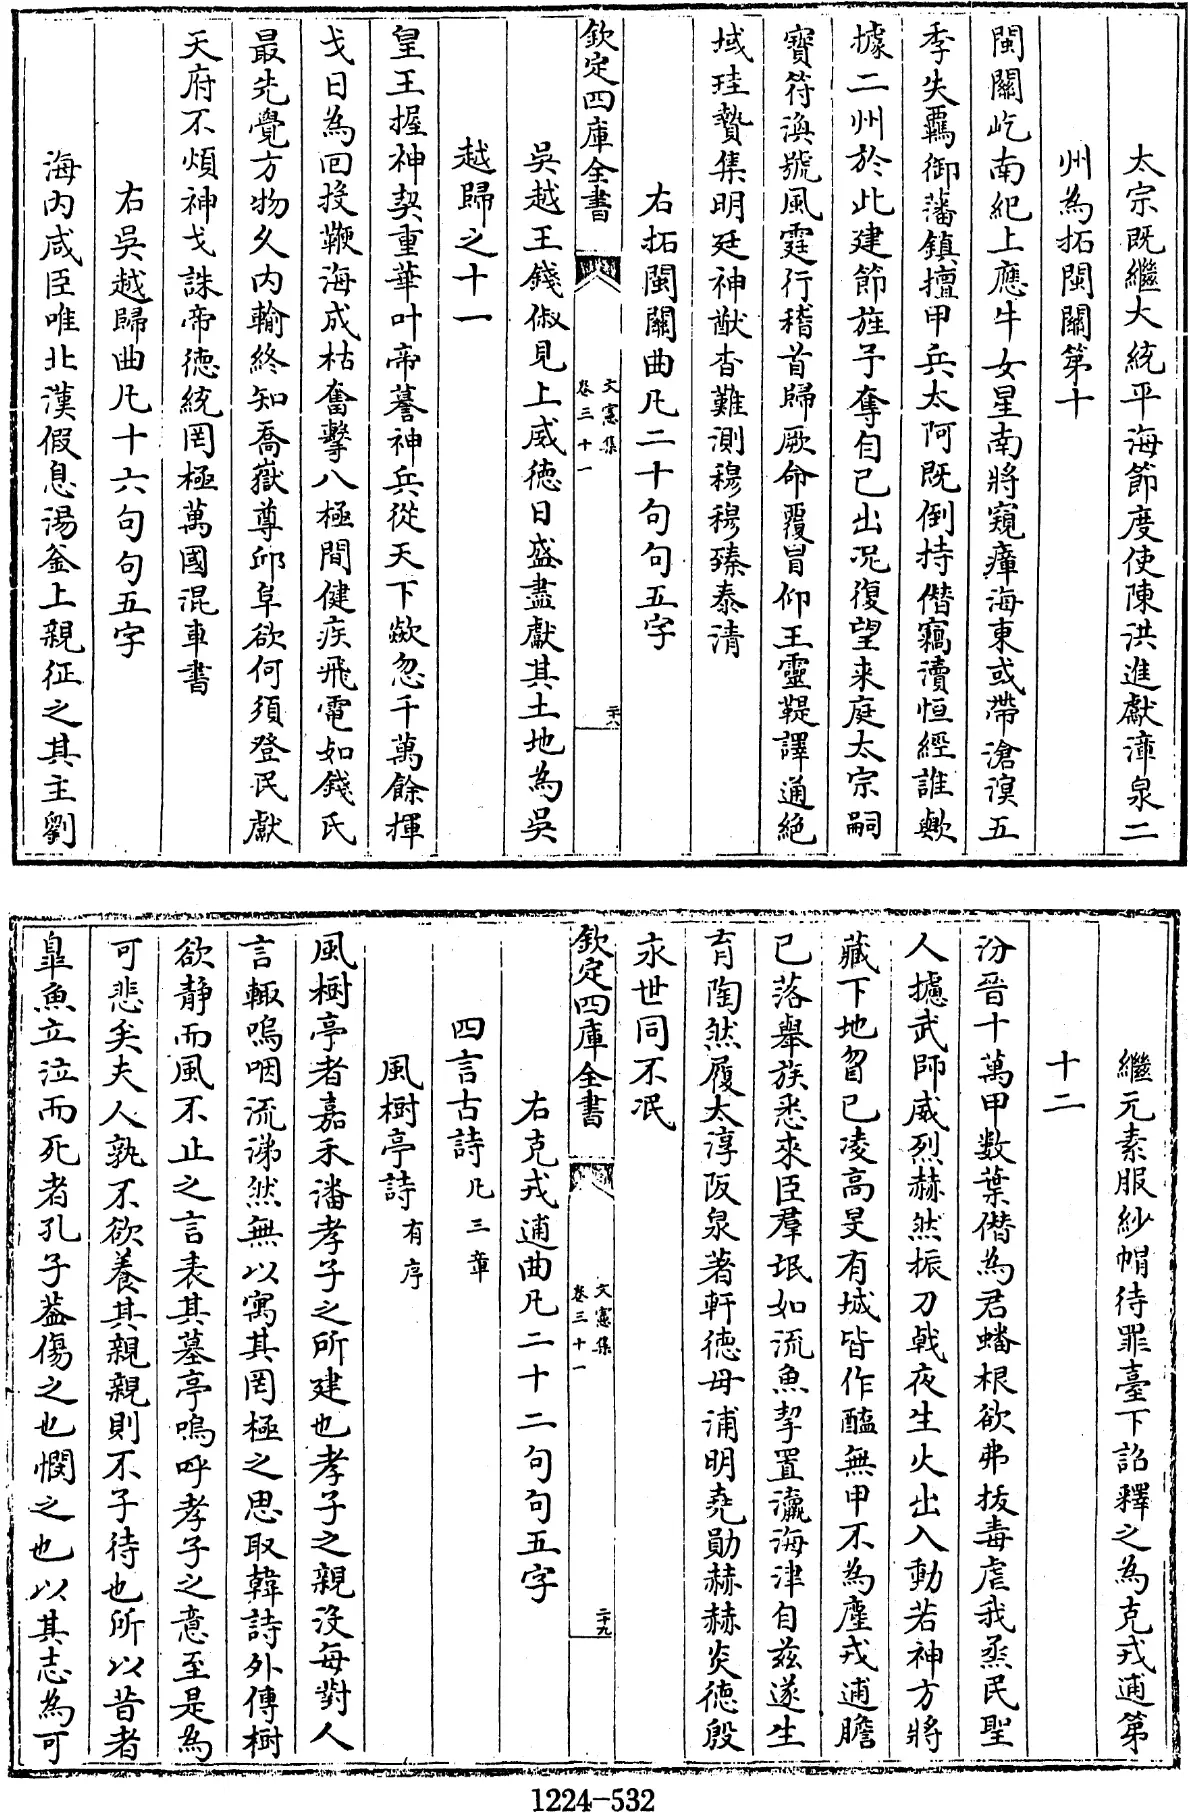 太宗既繼大統平海節度使陳洪進獻漳泉二
州為拓閩關第十
閩關屹南紀上應牛女星南將窺瘴海東或帶滄溟五
季失羈御藩鎮擅甲兵太阿既倒持僭竊瀆恒經誰歟
據二州於此建節旌予奪自己出况復望来庭太宗嗣
寶符渙號風霆行稽首歸厥命覆冒仰王靈鞮譯通絶
域珪贄集明廷神猷杳難測穆穆臻泰清
右拓閩關曲凡二十句句五字
欽定四庫全書
文憲集
卷三十一
二十八
吳越王錢俶見上威德日盛盡獻其土地為吳
越歸之十一
皇王握神契重華叶帝謩神兵從天下歘忽千萬餘揮
戈日為回投鞭海成枯奮擊八極間健疾飛電如錢氏
最先覺方物久内輸終知喬嶽尊邱阜欲何須登民獻
天府不煩神戈誅帝德統罔極萬國混車書
右吳越歸曲凡十六句句五字
海内咸臣唯北漢假息湯釡上親征之其主劉
繼元素服紗帽待罪臺下詔釋之為克戎逋第
十二
汾晉十萬甲数葉僭為君蟠根欲弗拔毒虐我烝民聖
人攄武師威烈赫然振刀戟夜生火出入動若神方將
藏下地曶已凌高旻有城皆作醢無甲不為塵戎逋膽
已落舉族悉來臣羣氓如流魚挈置瀛海津自兹遂生
育陶然履太淳阪泉著軒德丹浦明堯勛赫赫炎德殷
永世同不泯
欽定四庫全書
文憲集
卷三十一
二十九
右克戎逋曲凡二十二句句五字
四言古詩凡三章
風樹亭詩有序
風樹亭者嘉禾潘孝子之所建也孝子之親沒每對人
言輙嗚咽流涕然無以寓其罔極之思取韓詩外傳樹
欲静而風不止之言表其墓亭嗚呼孝子之意至是為
可悲矣夫人孰不欲養其親親則不子待也所以昔者
臯魚立泣而死者孔子葢傷之也憫之也以其志為可
1224-532